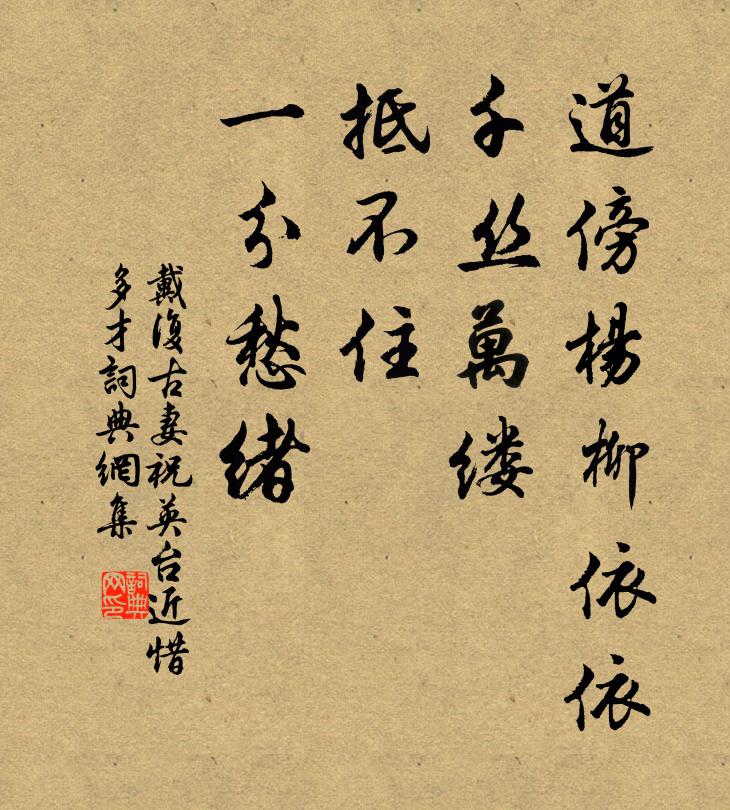 道傍楊柳依依
千丝萬缕
抵不住
一分愁緒
戴復古妻祝英台近惜
多才詞典網集
詞典网印